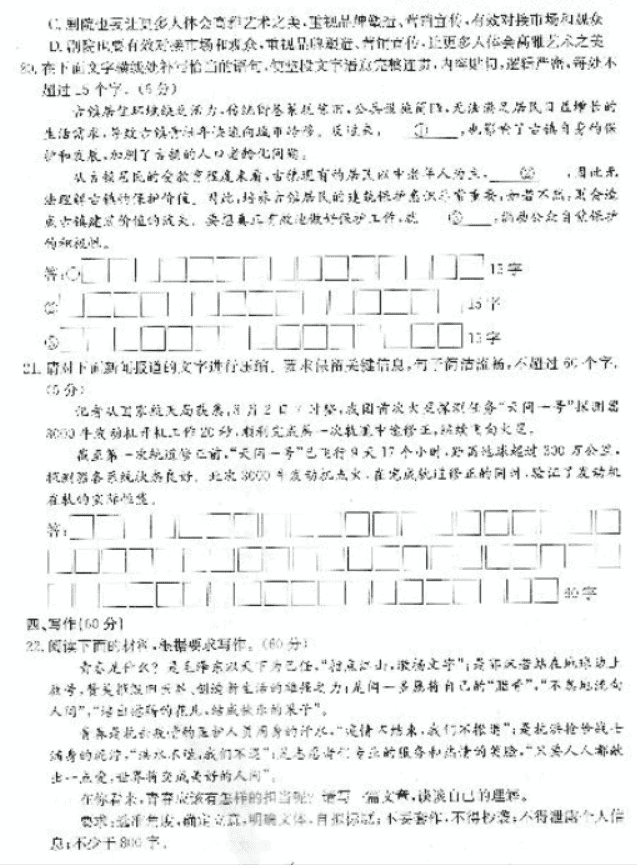 C. 剧院也要让更多人体会高雅艺术之美,重视品牌塑造、营销宣传,有效对接市场和观众
D. 剧院也要有效对接市场和观众,重视品牌塑造、营销宣传,让更多人体会高雅艺术之美
20. 在下面文字横线处补写恰当的语句,使整段文字语意完整连贯,内容贴切,逻辑严密,每处不
超过15个字。(6分)
古镇居住环境缺乏活力,传统街巷系统,公共设施简陋,无法满足居民日益增长的
生活需求,导致古镇青壮年流向城市。反过来, ① ,也影响了古镇自身的保
护和发展,加剧了古镇的人口老龄化问题。
从古镇居民的受教育程度来看,古镇现有的居民以中老年人为主, ② ,因此无
法理解古镇的保护价值。因此,培养古镇居民的建筑保护意识非常重要,如若不然,则会造
成古镇建筑价值的流失。要想真正有效地做好保护工作,就 ③ ,调动公众自觉保护
的积极性。
答:① 15字
② 15字
③ 15字
21. 请对下面新闻报道的文字进行压缩。要求保留关键信息,句子简洁流畅,不超过60个字。
(5分)
记者从国家航天局获悉,8月2日7时整,我国首次火星探测任务“天问一号”探测器
3000牛发动机开机工作20秒,顺利完成第一次轨道中途修正,继续飞向火星。
截至第一次轨道修正前,“天问一号”已飞行9天17个小时,距离地球超过300万公里,
探测器各系统状态良好。此次3000牛发动机点火,在完成轨道修正的同时,验证了发动机
在轨的实际性能。
答:
60字
四、写作(60分)
22. 阅读下面的材料,根据要求写作。(60分)
青春是什么?是毛泽东以天下为己任,“指点江山,激扬文字”;是郭沫若站在地球边上
放号,赞美摧毁旧世界、创造新生活的雄强之力;是闻一多愿将自己的“”,“不息地流向
人间”,“培出慰藉的花儿,结成快乐的果子”。
青春是抗击疫情的医护人员周身的汗水,“疫情不结束,我们不撤退”;是抗洪抢险战士
满身的泥泞,“洪水不退,我们不退”;是志愿者们专业的服务和热情的笑脸,“只要人人都献
出一点爱,世界将变成美好的人间”。
在你看来,青春应该有怎样的担当呢?请写一篇文章,谈谈自己的理解。
要求:选准角度,确定立意,明确文体,自拟标题;不要套作,不得抄袭;不得泄露个人信
息;不少于800字。